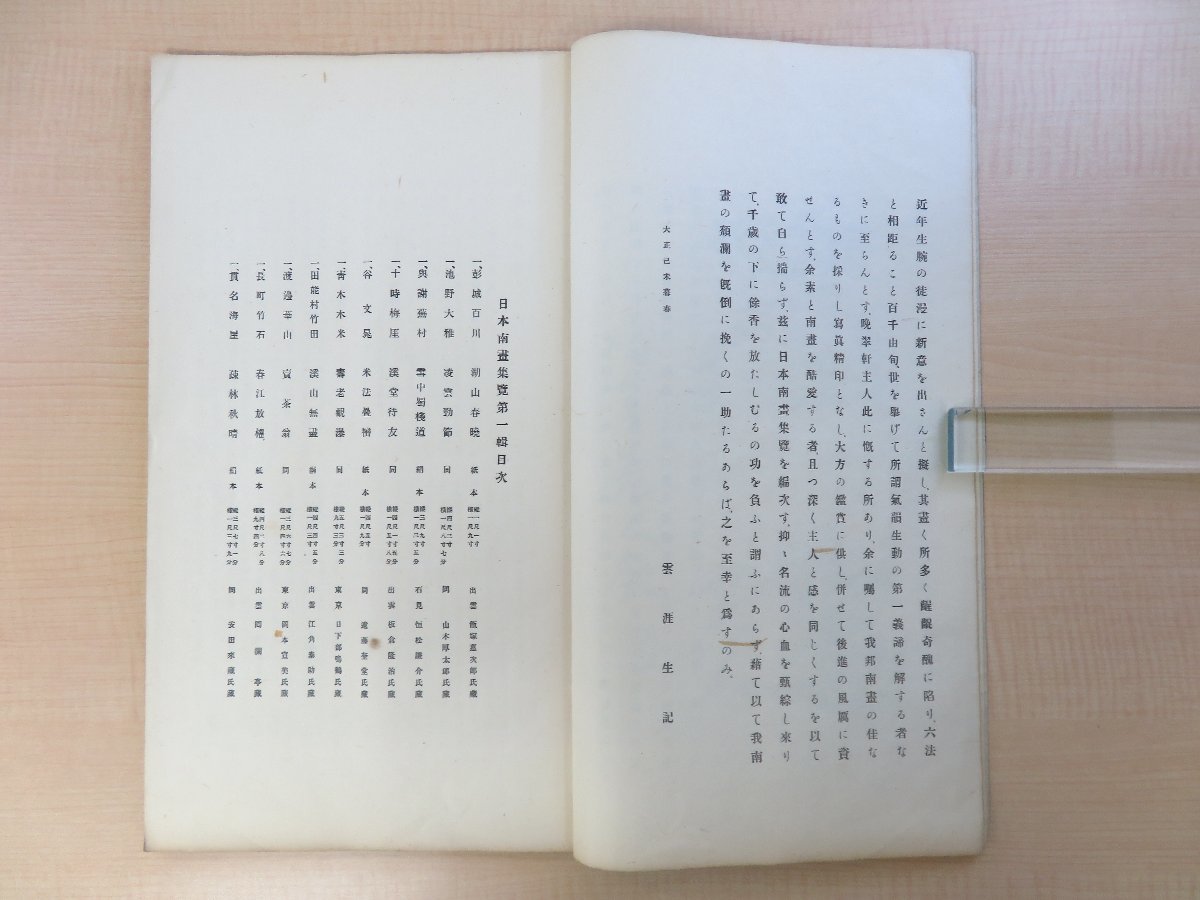 近年生腕の徒漫に新意を出さんと擬し、其畫く所多く齷齪奇醜に陷り、六法
と相距ること百千由旬、世を擧げて所謂氣韻生動の第一義諦を解する者な
きに至らんとす、晚翠軒主人此に慨する所あり、余に囑して我邦南畫の佳な
るものを採りし寫眞精印となし、大方の鑑賞に供し、併せて後進の風厲に資
せんとす、余素と南畫を酷愛する者、且つ深く主人と感を同じくするを以て
敢て自ら揣らず、茲に日本南畫集覽を編次す、抑〻名流の心血を甄綜し來り
て、千歲の下に餘香を放たしむるの功を負ふと謂ふにあらず、藉て以て我南
畫の頽瀾を既倒に挽くの一助たるあらば、之を至幸と爲すのみ、
大正己未暮春
雲涯生記
日本南畫集覽第一輯目次
一、彭城百川 湖山春曉 紙本
一、池野大雅 凌雲勁節 同 山本厚太郎氏藏
一、與謝蕪村 雪中蜀棧道 絹本 石見 恒松謙介氏藏
一、十時梅厓 溪堂待友 同 出雲 板倉隆治氏藏
一、谷文晁 米法疊嶂 紙本 同
一、靑木木米 壽老觀瀑 同 東京 日下部鳴鶴氏藏
一、田能村竹田 溪山無盡 絹本 出雲 江角嘉助氏藏
一、渡邊華山 賣茶翁 同 東京 岡本宣美氏藏
一、長町竹石 春江放櫂 紙本 出雲
一、貫名海屋 疎林秋晴 絹本 同